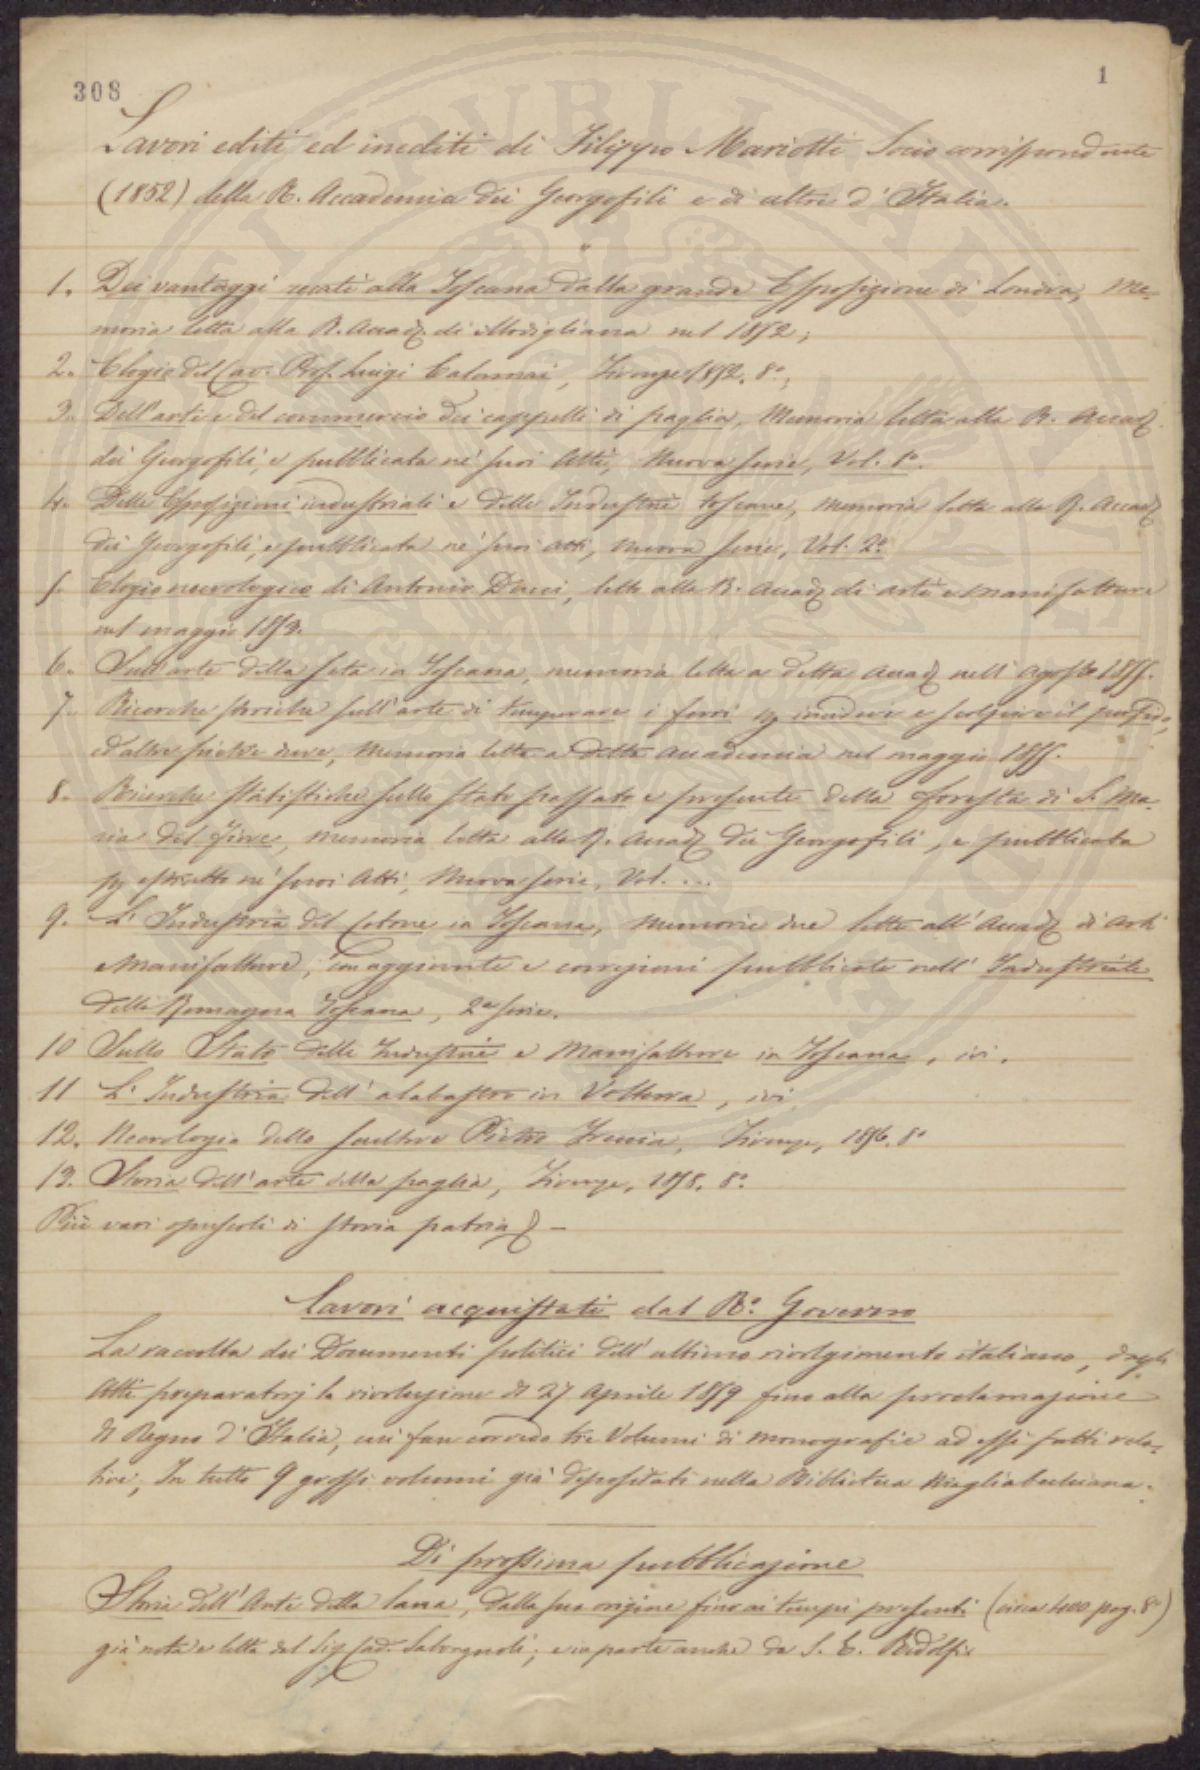 308
1
Lavori editi ed inediti di Filippo Mariotti Socio corrispondente
(1852) della R. Accademia dei Georgofili e di altre d'Italia.
1. Dei vantaggi recati alla Toscana dalla grande Esposizione di Londra, Me-
moria letta alla R. Accad. di Modigliana nel 1852;
2. Elogio del Cav. Prof. Luigi Calamai, Firenze, 1852. 8°;
3. Dell'arte e del commercio dei cappelli di paglia, Memoria letta alla R. Accad.
dei Georgofili, e pubblicata ne' suoi Atti, Nuova serie, Vol. 1°.
4. Delle Esposizioni industriali e delle Industrie toscane, memoria letta alla R. Accad.
dei Georgofili, e pubblicata ne' suoi atti, nuova serie, Vol. 2°.
5. Elogio necrologico di Antonio Ducci, letto alla R. Accad. di arti e manifatture
nel maggio 1853.
6. Sull'arte della seta in Toscana, memoria letta a detta Accad. nell'Agosto 1855.
7. Ricerche storiche sull'arte di temperare i ferri per incidere e scolpire il porfido,
ed altre pietre dure, Memoria letta a detta Accademia nel maggio 1855.
8. Ricerche statistiche sullo stato passato e presente della foresta di S. Ma-
ria del Fiore, memoria letta alla R. Accad. dei Georgofili, e pubblicata
per estratto ne' suoi Atti, Nuova serie, Vol. ...
9. L'Industria del Cotone in Toscana, memorie due lette all'Accad. di Arti
e Manifatture, con aggiunte e correzioni pubblicate nell'Industriale
della Romagna Toscana, 2a serie.
10 Sullo Stato delle Industrie e Manifatture in Toscana, ivi.
11 L'Industria dell'alabastro in Volterra, ivi
12. Necrologia dello scultore Pietro Freccia, Firenze, 1856. 8°
13. Storia dell'arte della paglia, Firenze, 1858. 8°.
Più vari opuscoli di storia patria –
Lavori acquistati dal R°. Governo
La raccolta dei Documenti politici dell'ultimo rivolgimento italiano, dagli
Atti preparatorj la rivoluzione di 27 Aprile 1859 fino alla proclamazione
di Regno d'Italia, cui fan corredo tre Volumi di monografie ad essi fatti rela-
tive; In tutto 9 grossi volumi già depositati nella Biblioteca Magliabechiana.
Di prossima pubblicazione
Storia dell'Arte della lana, dalla sua origine fino ai tempi presenti (circa 400 pag. 8°)
già nota e letta dal Sig. Cad. Salvagnoli; e in parte anche da S. E. Ridolfi.